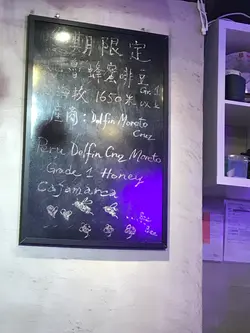 期限定
蜂蜜啡豆
Gr 1
海拔1650米以上
產商：Dolfin Moreto
Cruz
Peru Dolfin Cruz Moreto
Grade 1 Honey
Cajamarca